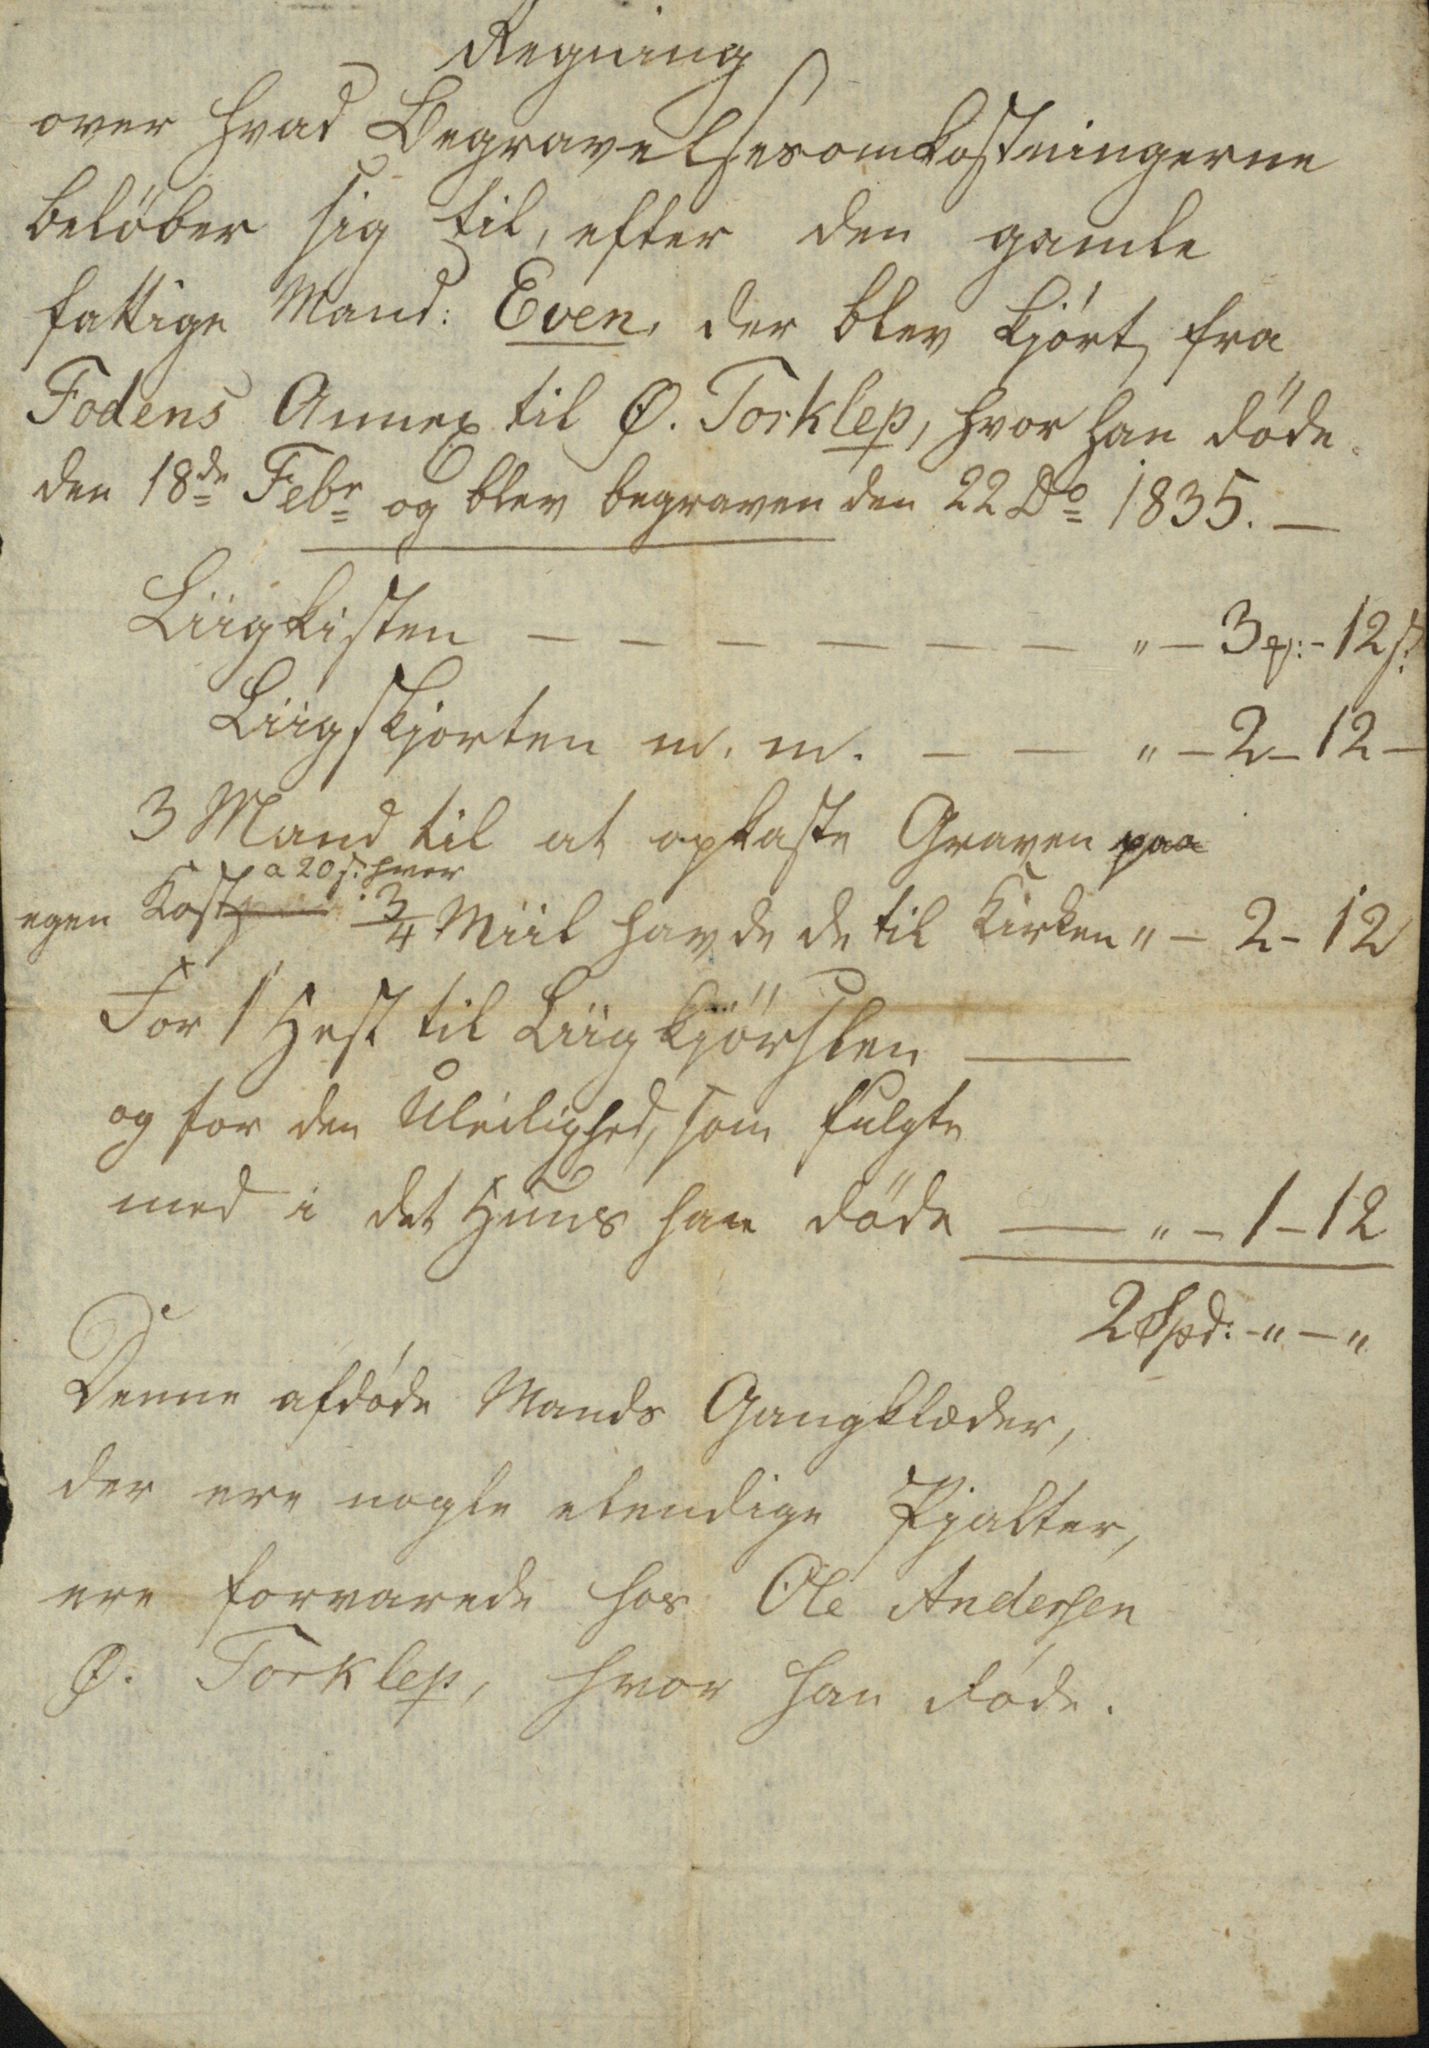 Regning
over hvad Begravelsesomkostningerne
beløber sig til, efter den gamle
fattige Mand: Even, der blev kjørt fra
Fodens Annex til Ø. Torklep, hvor han døde
den 18de Febr og blev begraven den 22 Do 1835. —
Liigkisten — — — — — — " — 3 ₻: - 12 s:
Liigskjorten m. m. — — " — 2 — 12 —
3 Mand til at opkaste Graven paa
a 20 s: hver
egen Kost 3/4 Miil havde de til Kirken " — 2 - 12
For 1 Hest til Liigkjørslen —
og for den Uleilighed, som fulgte
med i det Huus han døde — " — 1 — 12
2 Spd: - " — "
Denne afdøde Mands Gangklæder,
der ere nogle elendige Pjalter,
ere forvarede hos Ole Andersen
Ø. Torklep, hvor han døde.